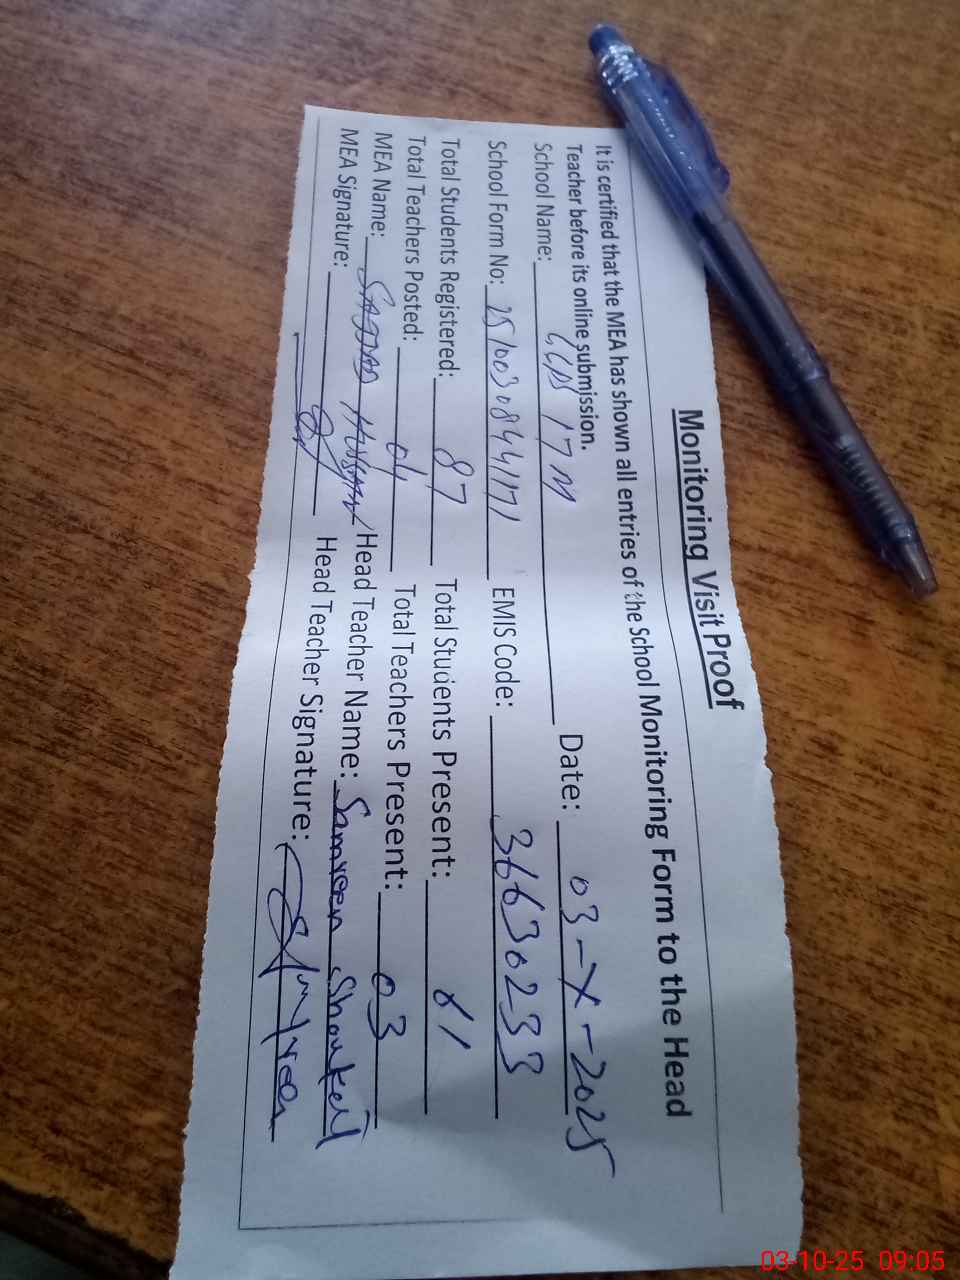 Monitoring Visit Proof
It is certified that the MEA has shown all entries of the School Monitoring Form to the Head
Teacher before its online submission.
School Name: 17 M Date: 03-X-2025
School Form No: EMIS Code: 36630233
Total Students Registered: 87 Total Students Present: 61
Total Teachers Posted: 04 Total Teachers Present: 03
MEA Name: SAJJAD HUSSAIN Head Teacher Name: Samreen Shoukat
MEA Signature: Head Teacher Signature: Samreen
03-10-25 09:05